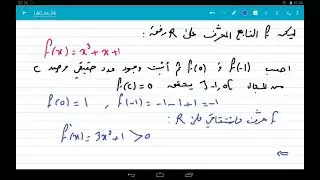 LBC_ex_24
ليكن f التابع المعرّف على R وفق:
f(x) = x³ + x + 1
احسب f(-1) و f(0) ثم أثبت وجود عدد حقيقي وحيد c
من المجال ]-1,0[ يحقق f(c) = 0
f(0) = 1 , f(-1) = -1 -1 +1 = -1
f معرف واشتقاقي على R:
f'(x) = 3x² + 1 > 0